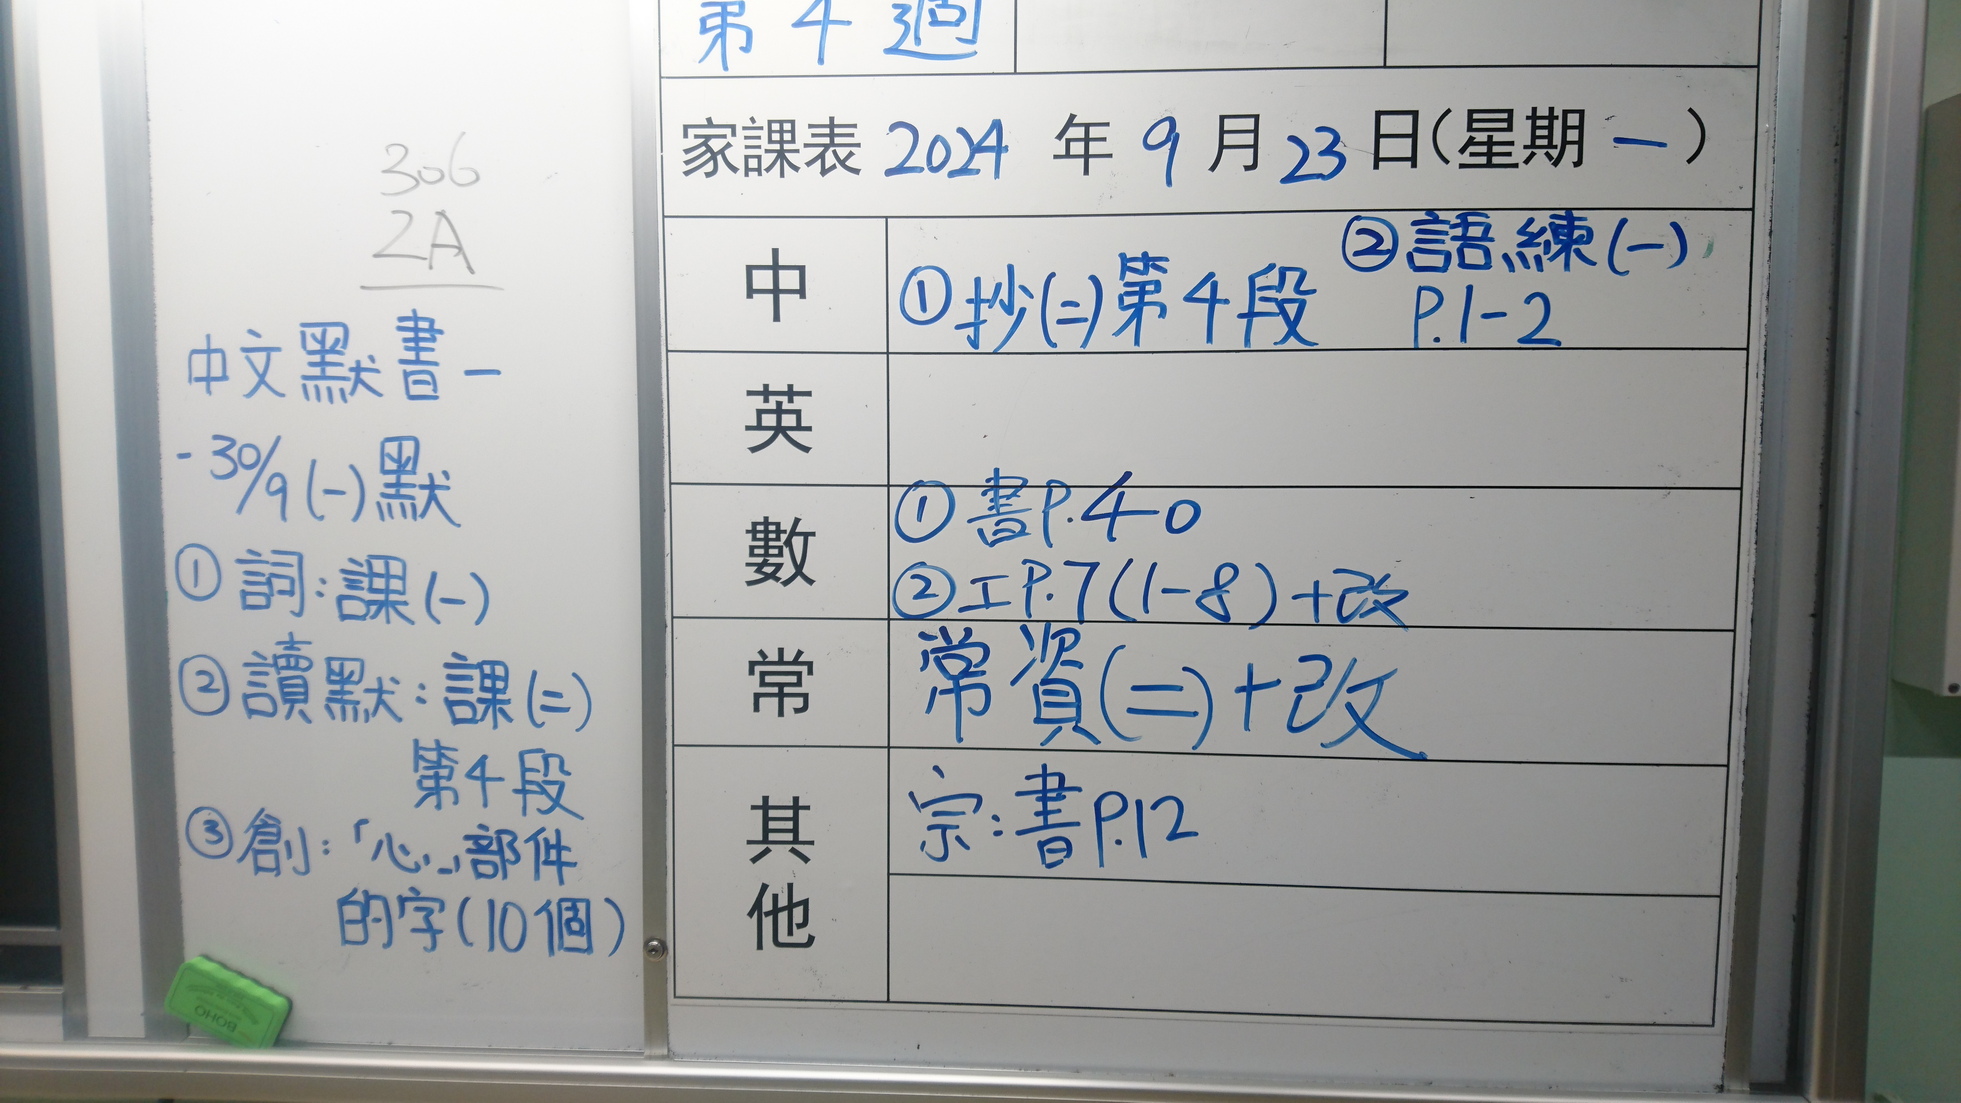 306
2A
中文默書一
-30/9(一)默
①詞:課(一)
②讀默:課(二)
第4段
③創:「心」部件
的字(10個)
BOHO
第4週
家課表 2024 年 9 月 23 日(星期 一)
中
①抄(二)第4段
②語練(一)
P.1-2
英
數
①書P.40
②工P.7(1-8)+改
常
常資(二)+改
其他
宗:書P.12